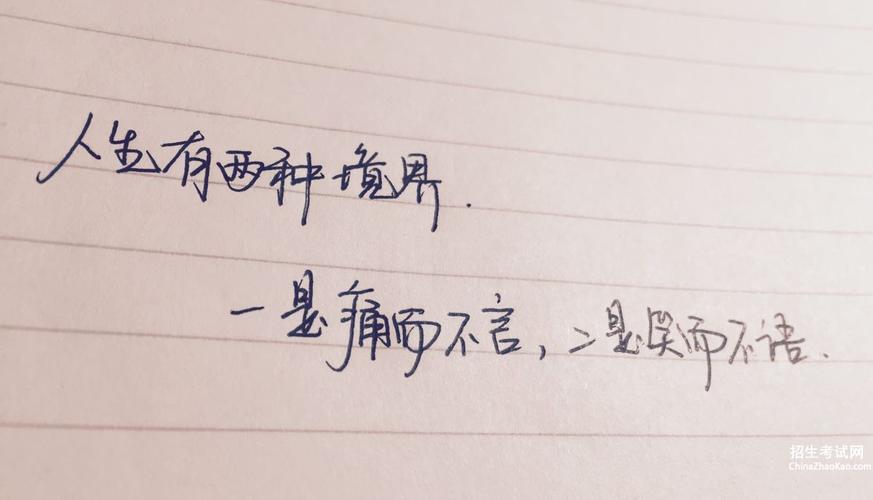 人生有两种境界.
一是痛而不言,二是笑而不语.
招生考试网
ChinaZhaoKao.com